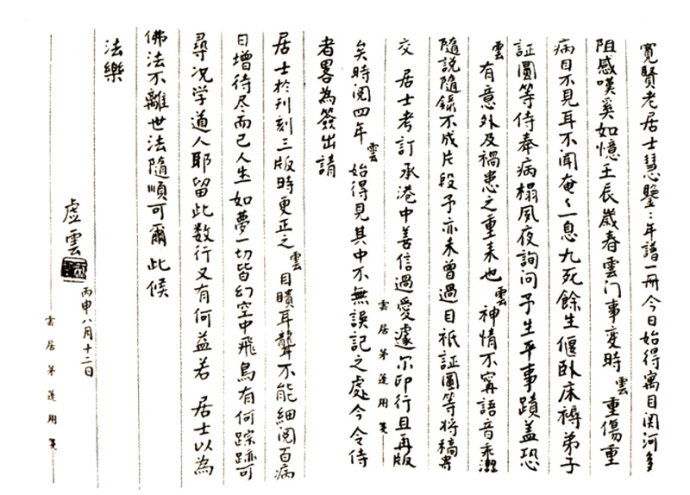 寬賢老居士慧鑒:年譜一冊今日始得寓目関河多
阻感嘆奚如憶壬辰歲春雲门事変時雲重傷重
病目不見耳不聞奄々一息九死餘生偃卧床褥弟子
証圓等侍奉病榻夙夜詢问予生平事蹟盖恐
雲有意外及禍患之重来也雲神情不甯語音
隨説隨錄不成片段予亦未曾過目祇証圓等将稿寄
交 居士考訂承港中善信過愛遽尔印行且再版
矣時阅四年雲始得見其中不無誤记之處今令侍
者畧為簽出請
居士於刊刻三版時更正之雲目瞶耳聾不能細阅百病
日增待尽而已人生如夢一切皆幻空中飛鳥有何踪跡可
尋况学道人耶留此数行又有何益若 居士以為
佛法不離世法隨順可爾此候
法樂
虛雲
丙申八月十二日
雲居茅蓬用箋
雲居茅蓬用箋